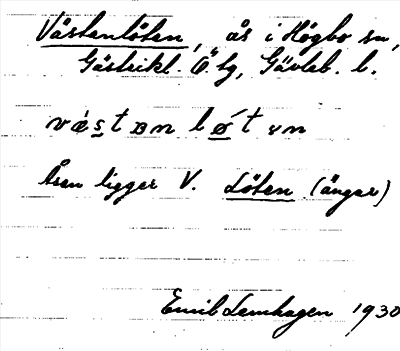 Västenlöten, ås i Högbo sn,
Gästrikl. Ö. tg, Gävleb. l.
våstən løtən
Åsen ligger V. Löten (ängar)
Emil Lenhagen 1930